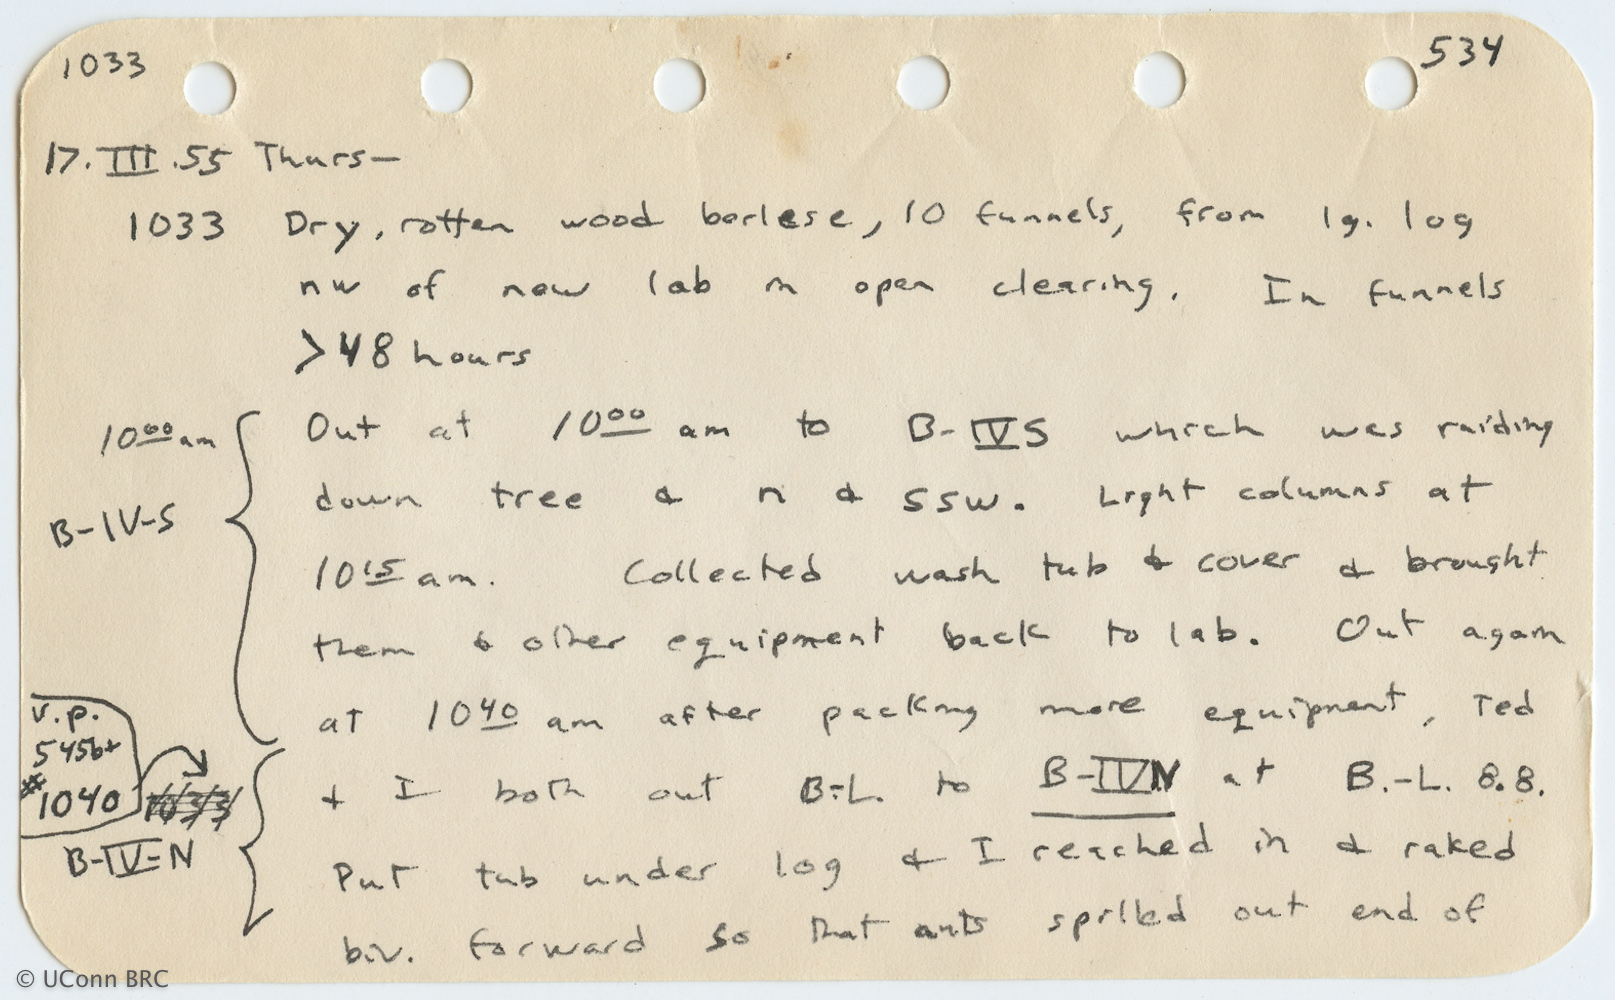 1033
534
17.III.55 Thurs—
1033 Dry, rotten wood berlese, 10 funnels, from lg. log
nw of new lab in open clearing. In funnels
>48 hours
10⁰⁰ am
B-IV-S
Out at 10⁰⁰ am to B-IVS which was raiding
down tree & n & ssw. Light columns at
10¹⁵ am. Collected wash tub & cover & brought
them & other equipment back to lab. Out again
at 10⁴⁰ am after packing more equipment, Ted
& I both out B.-L. to B-IVN at B.-L. 8.8.
Put tub under log & I reached in & raked
biv. forward so that ants spilled out end of
v.p.
545b+
#1040
1033
B-IV-N
© UConn BRC